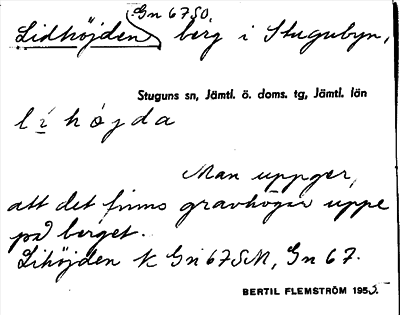 Gn 67SO.
Lidhöjden, berg i Stugubyn,
Stuguns sn, Jämtl. ö. doms. tg, Jämtl. län
l í h ǫ j d a
Man uppger,
att det finns gravhögar uppe
på berget.
Lihöjden K Gn 67SM, Gn 67.
BERTIL FLEMSTRÖM 1955.